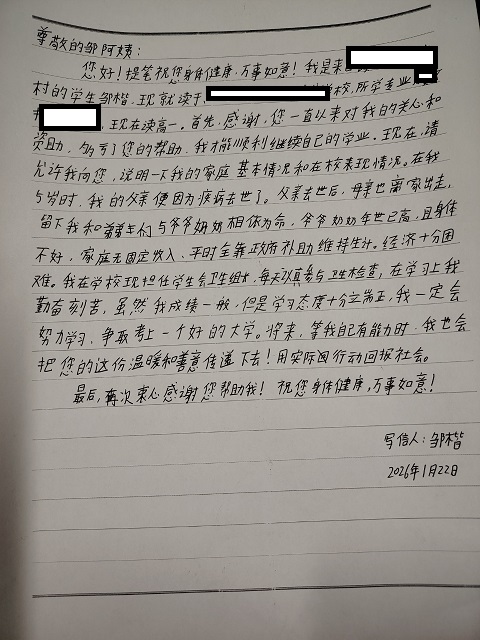 尊敬的邹阿姨:
您好!提笔祝您身体健康,万事如意!我是来自
村的学生邹楷,现就读于 学校,所学专业
,现在读高一。首先,感谢,您一直以来对我的关心和
资助,多亏了您的帮助,我才能顺利继续自己的学业。现在,请
允许我向您,说明一下我的家庭基本情况和在校表现情况。在我
5岁时,我的父亲便因为疾病去世了。父亲去世后,母亲也离家出走,
留下我和弟弟妹们与爷爷奶奶相依为命,爷爷奶奶年世已高,且身体
不好,家庭无固定收入、平时全靠政府补助维持生计。经济十分困
难。我在学校现担任学生会卫生组长,每天认真参与卫生检查,在学习上我
勤奋刻苦,虽然我成绩一般,但是学习态度十分端正,我一定会
努力学习,争取考上一个好的大学。将来,等我自己有能力时,我也会
把您的这份温暖和善意传递下去!用实际行动回报社会。
最后,再次衷心感谢您帮助我!祝您身体健康,万事如意!
写信人:邹楷
2026年1月22日